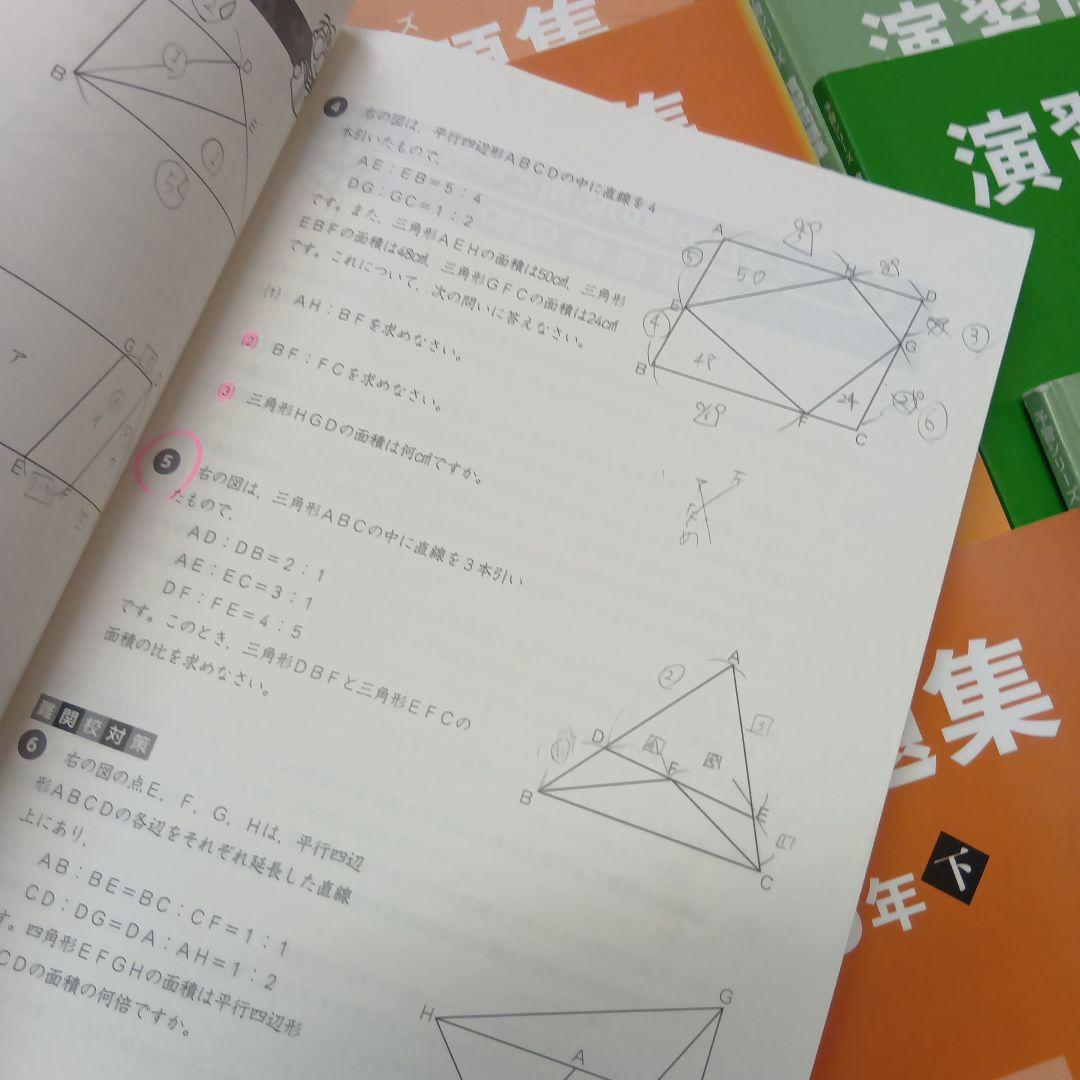 題集
集
演習
演習
予習シリーズ
題集
5年
下
4
右の図は，平行四辺形ABCDの中に直線を4
本引いたもので，
AE：EB＝5：4
DG：GC＝1：2
です。また，三角形AEHの面積は50cm²，三角形
EBFの面積は48cm²，三角形GFCの面積は24cm²
です。これについて，次の問いに答えなさい。
(1) AH：BFを求めなさい。
(2) BF：FCを求めなさい。
(3) 三角形HGDの面積は何cm²ですか。
A
H
D
E
G
B
F
C
⑤
④
50
48
24
③
⑥
5
右の図は，三角形ABCの中に直線を3本引い
たもので，
AD：DB＝2：1
AE：EC＝3：1
DF：FE＝4：5
です。このとき，三角形DBFと三角形EFCの
面積の比を求めなさい。
A
D
F
E
B
C
②
①
3
4
5
1
難関校対策
6
右の図の点E，F，G，Hは，平行四辺
形ABCDの各辺をそれぞれ延長した直線
上にあり，
AB：BE＝BC：CF＝1：1
CD：DG＝DA：AH＝1：2
す。四角形EFGHの面積は平行四辺形
CDの面積の何倍ですか。
H
G
A
B
D
E
20
2
56
ア
G
イ
E
F